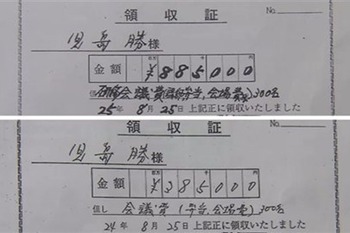 領収証
No
児島勝様
金額 ¥885000
会議費 弁当,会場費)300名
25年 8月25日上記正に領収いたしました
領収証
No
児島勝様
金額 ¥385000
但し 会議費 (弁当,会場費)300名
24年 8月25日上記正に領収いたしました